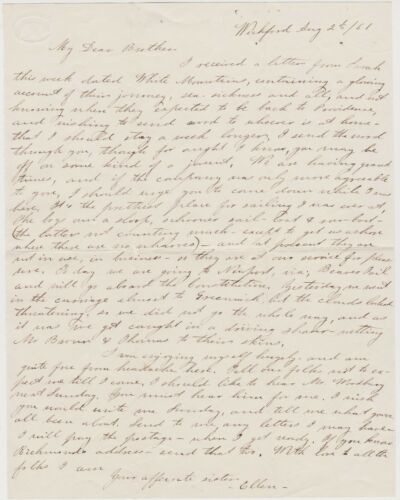 Wickford Aug 2d/61
My Dear Brother
I received a letter from Sarah
this week dated White Mountains, containing a glowing
account of their journey, sea-sickness and all, and not
knowing when they expected to be back to Providence,
and wishing to send word to whoever is at home -
that I should stay a week longer, I send the word
through you, though for aught I know, you may be
off on some kind of a journey. We are having grand
times, and if the company was only more agreeable
to you, I should urge you to come down while I am
here. It's the prettiest place for sailing I was ever at,
own a sloop, schooner sail-boat & row-boat -
(the latter not counting much - except to get us ashore
where there are no wharves) - and at present they are
not in use, in business - so they are at our service for pleas-
ure. To day we are going to Newport, via, Beaver Tail
and will go aboard the Constitution. Yesterday, we went
in the carriage almost to Greenwich, but the clouds looked
threatening, so we did not go the whole way, and as
it was we got caught in a driving shower - wetting
Mr & Thomas to their skins.
I am enjoying myself hugely, and am
quite free from headache here. Tell our folks not to ex-
pect me till I come, I should like to hear Mr.
next Sunday. You must hear him for me. I wish
you would write me Sunday, and tell me what you've
all been about. Send to me any letters I may have -
I will pay the postage - when I get ready. If you know
Richmond's address - send that too. With love to all the
folks I am
Your affectionate sister
- Ellen -